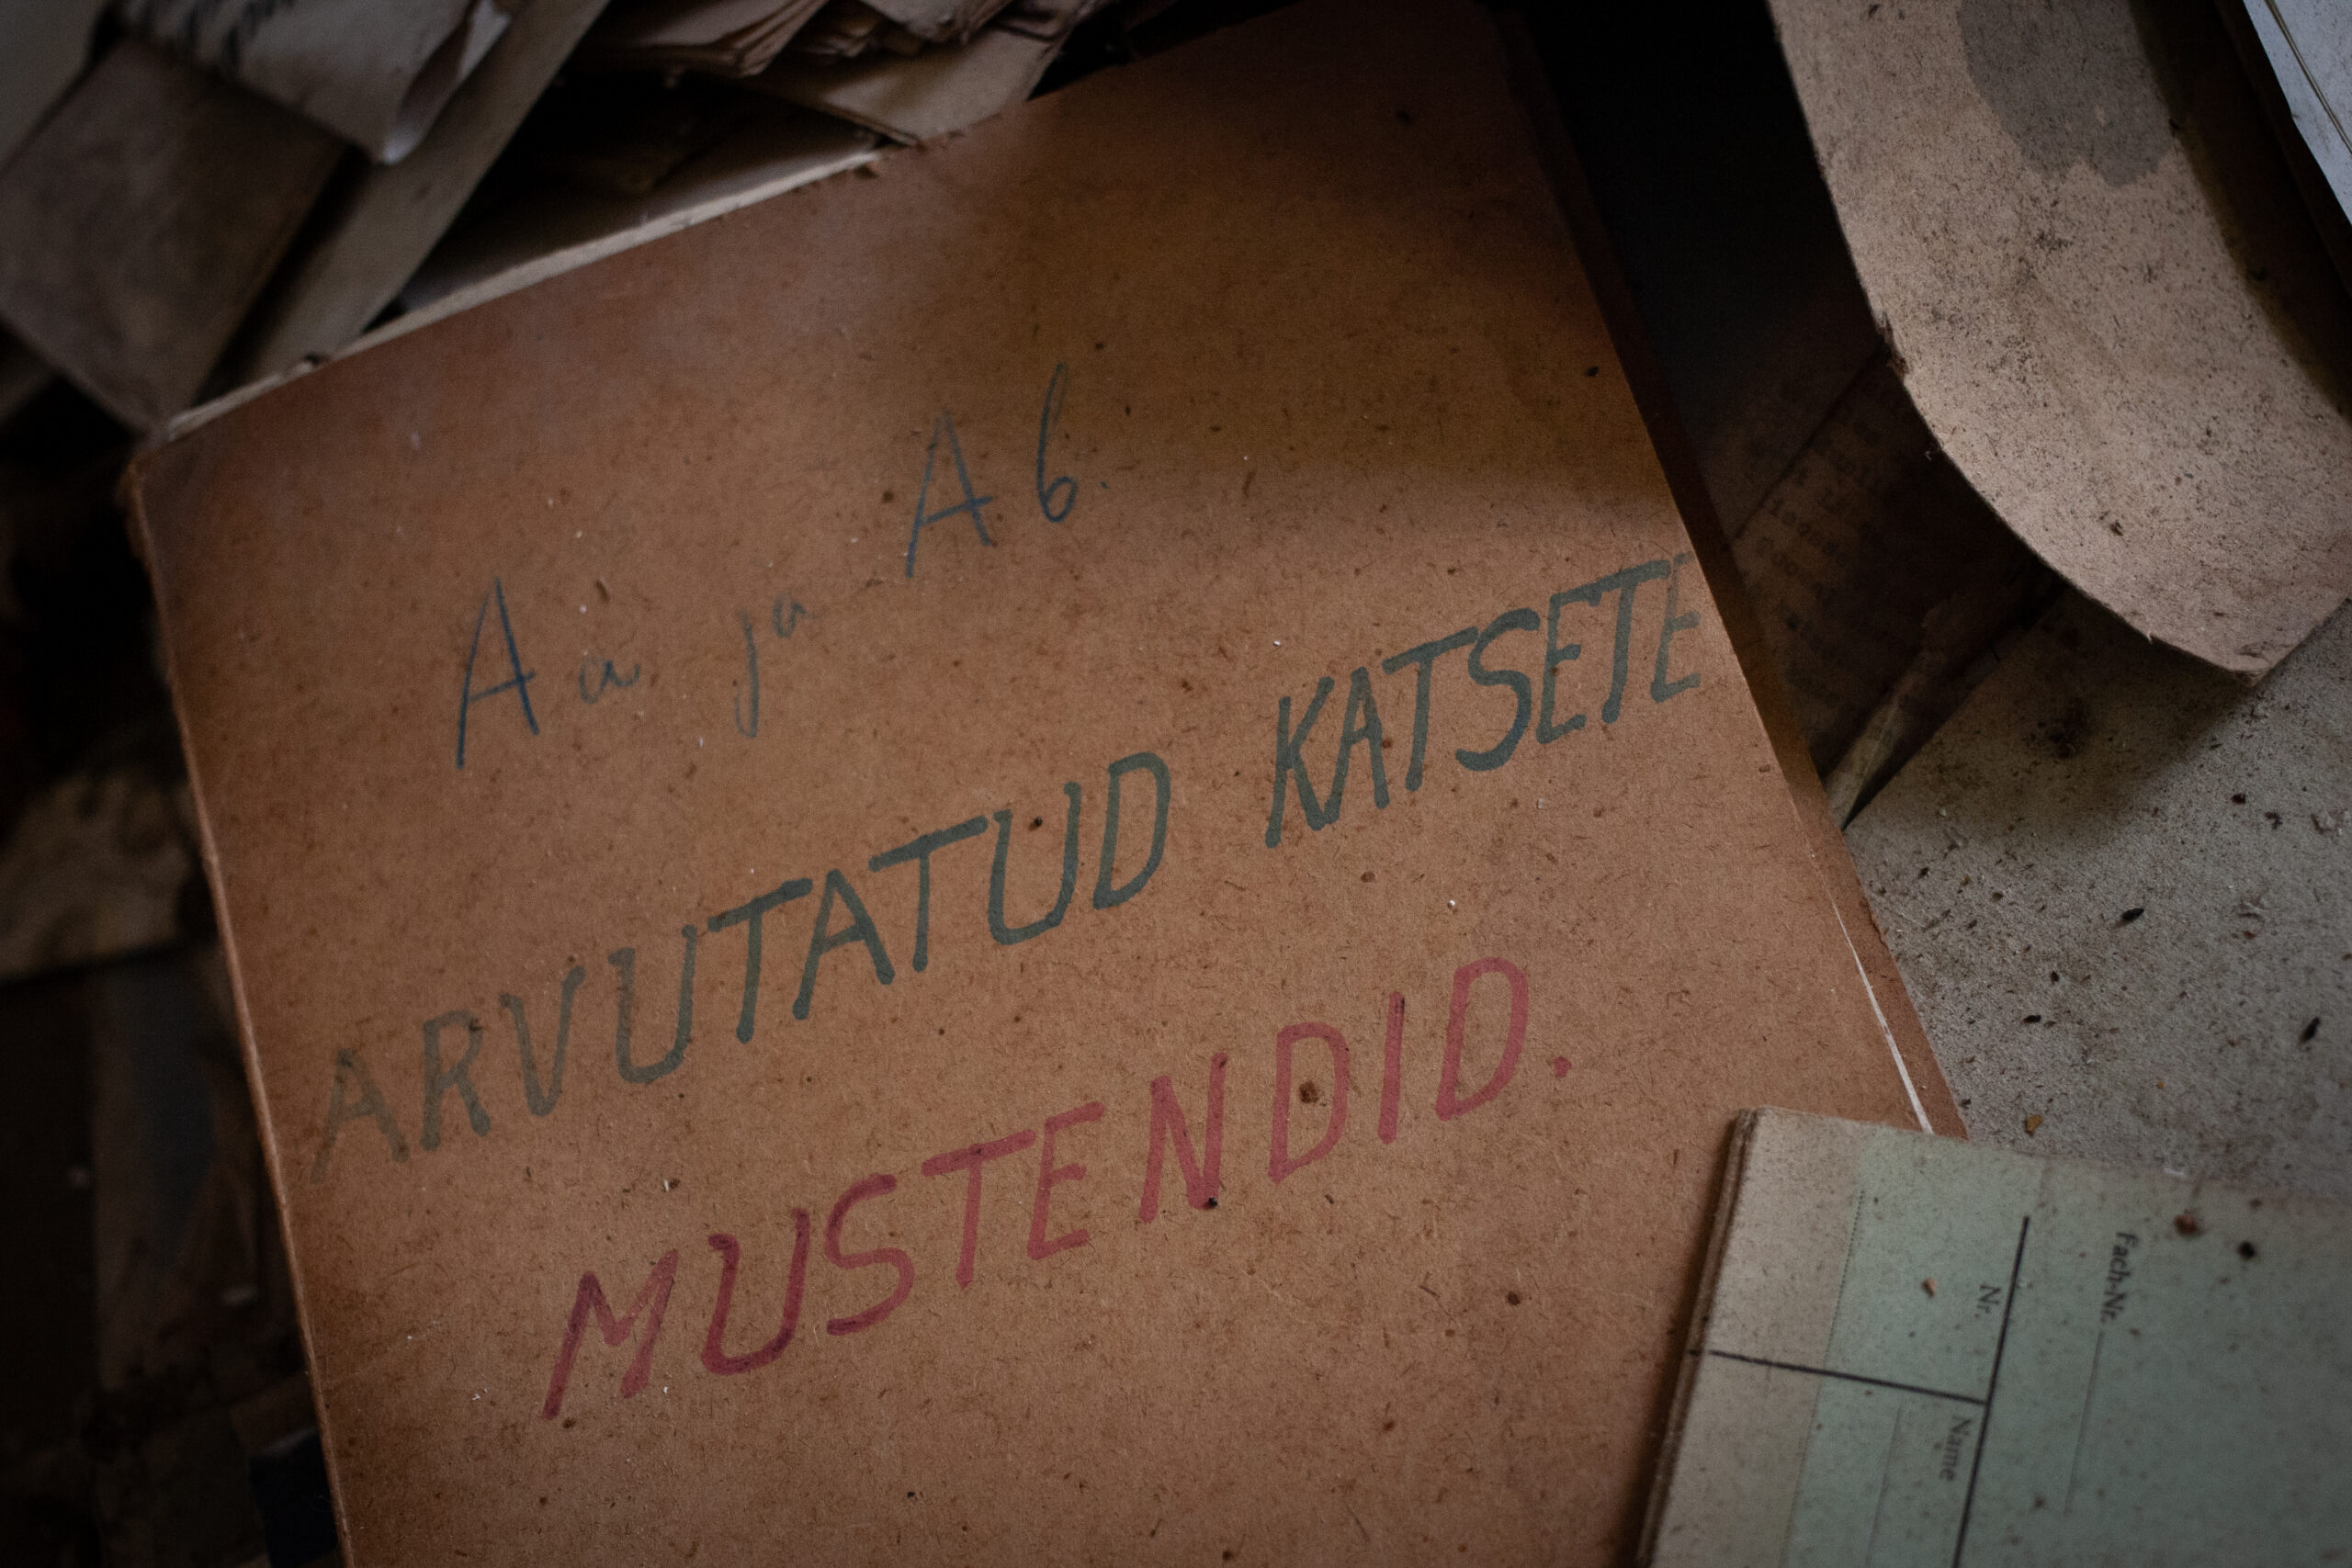 Aa ja Ab.
ARVUTATUD KATSETE
MUSTENDID.
Fach-Nr.
Nr.
Name